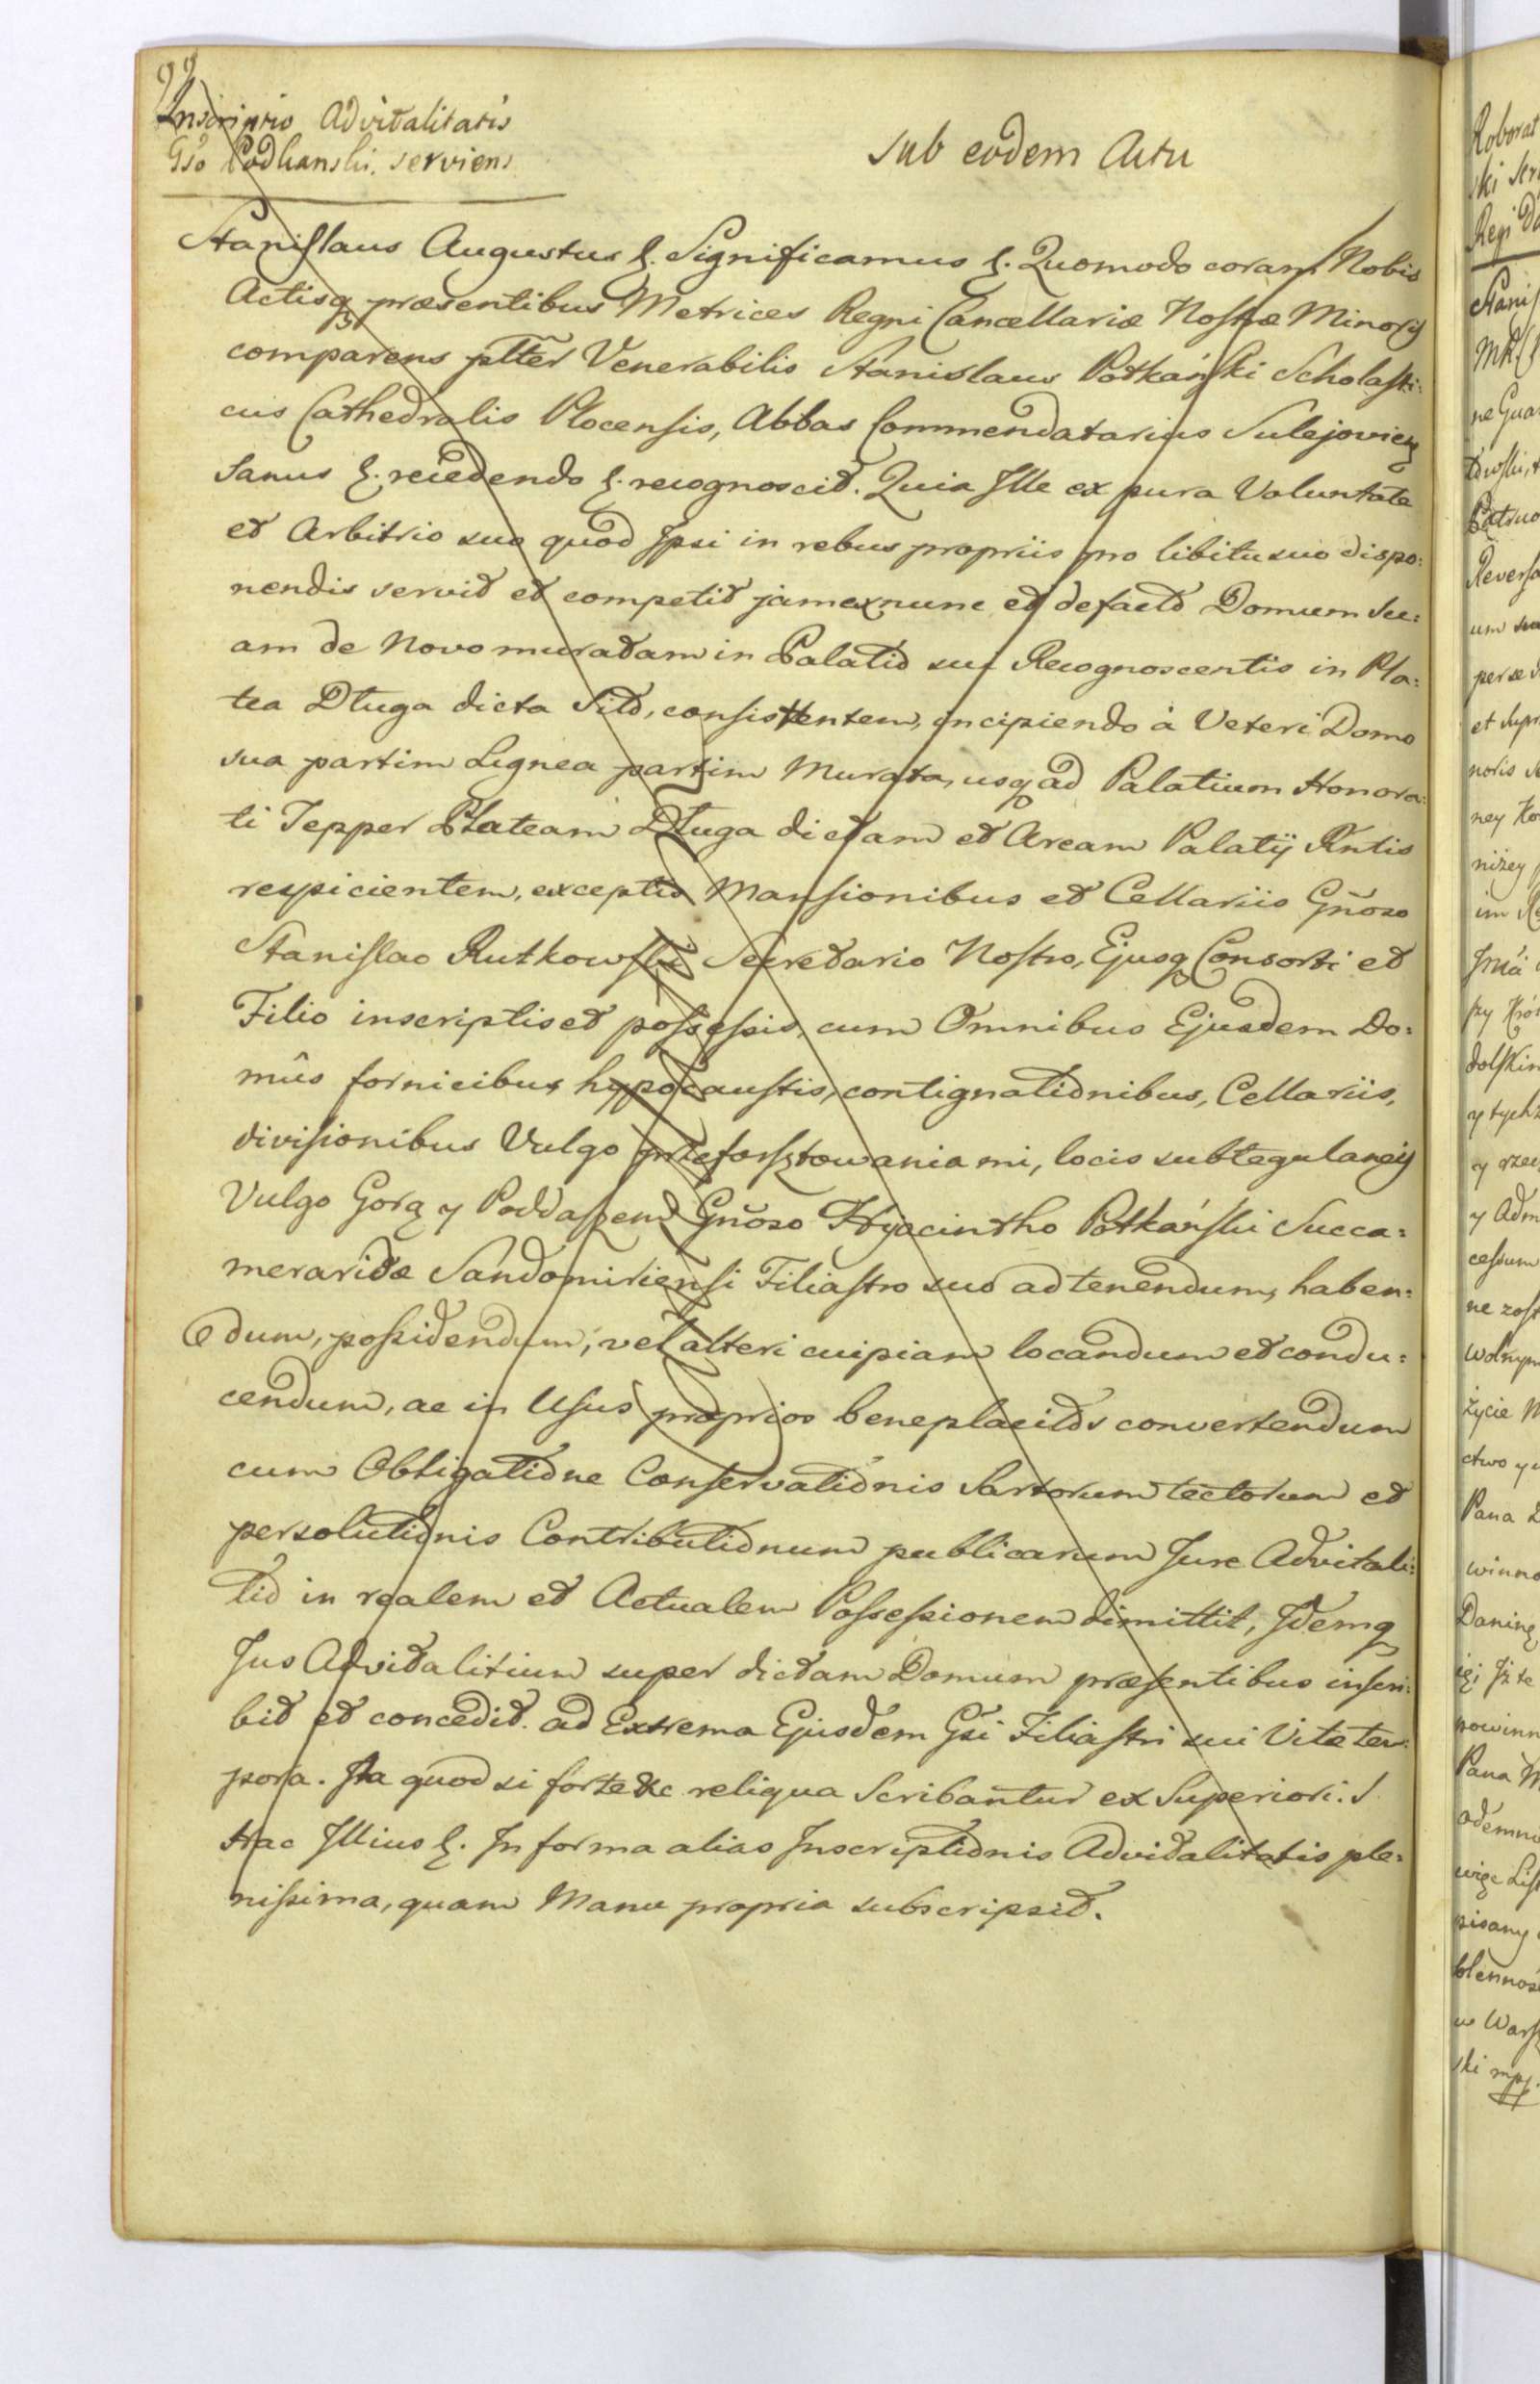 99
Inscriptio Advitalitatis
Gso Podkanski serviens
sub eodem Actu
Stanislaus Augustus &. Significamus &. Quomodo coram Nobis
Actisq3 præsentibus Metrices Regni Cancellariæ Nostræ Minoris
comparens pltter Venerabilis Stanislaus Potkański Scholasti:
cus Cathedralis Plocensis, Abbas Commendatarius Sulejovien
sanus &. recedendo &. recognoscit. Quia Ille ex pura Voluntate
et Arbitrio suo quod Ipsi in rebus propriis pro libitu suo dispo:
nendis servit et competit jamexnunc et defacto Domum su:
am de Novo muratam in Palatio sui Recognoscentis in Pla:
tea Długa dicta Sito, consistentem, incipiendo à Veteri Domo
sua partim Lignea partim Murata, usq ad Palatium Honora:
ti Tepper Plateam Długa dictam et Aream Palatij Rntis
respicientem, exceptis Mansionibus et Cellariis Gñoso
Stanislao Rutkowski Secretario Nostro, Ejusq Consorti et
Filio inscriptis et possessis, cum Omnibus Ejusdem Do:
mûs fornicibus hypocaustis, contignationibus, Cellariis,
divisionibus Vulgo przeforsztowania mi, locis subtegulaneis
Vulgo Gorą y Poddaszem Gñoso Hyacintho Potkański Succa:
merarido Sandomiriensi Filiastro suo ad tenendum, haben:
dum, possidendum, vel alteri cuipiam locandum et condu:
cendum, ac in Usus proprios beneplacitos convertendum
cum Obligatione Conservationis Sartorum tectorum et
persolutionis Contributionum publicarum Jure Advitali:
tio in realem et Actualem Possessionem dimittit, Idemq
Jus Advitalitium super dictam Domum præsentibus inscri:
bit et concedit. ad Extrema Ejusdem Gsi Filiastri sui Vitæ tem:
pora. Ita quod si forte &c reliqua Scribantur ex Superiori.
Hac Illius &. In forma alias Inscriptionis Advitalitatis ple:
nissima, quam Manu propria subscripsit.